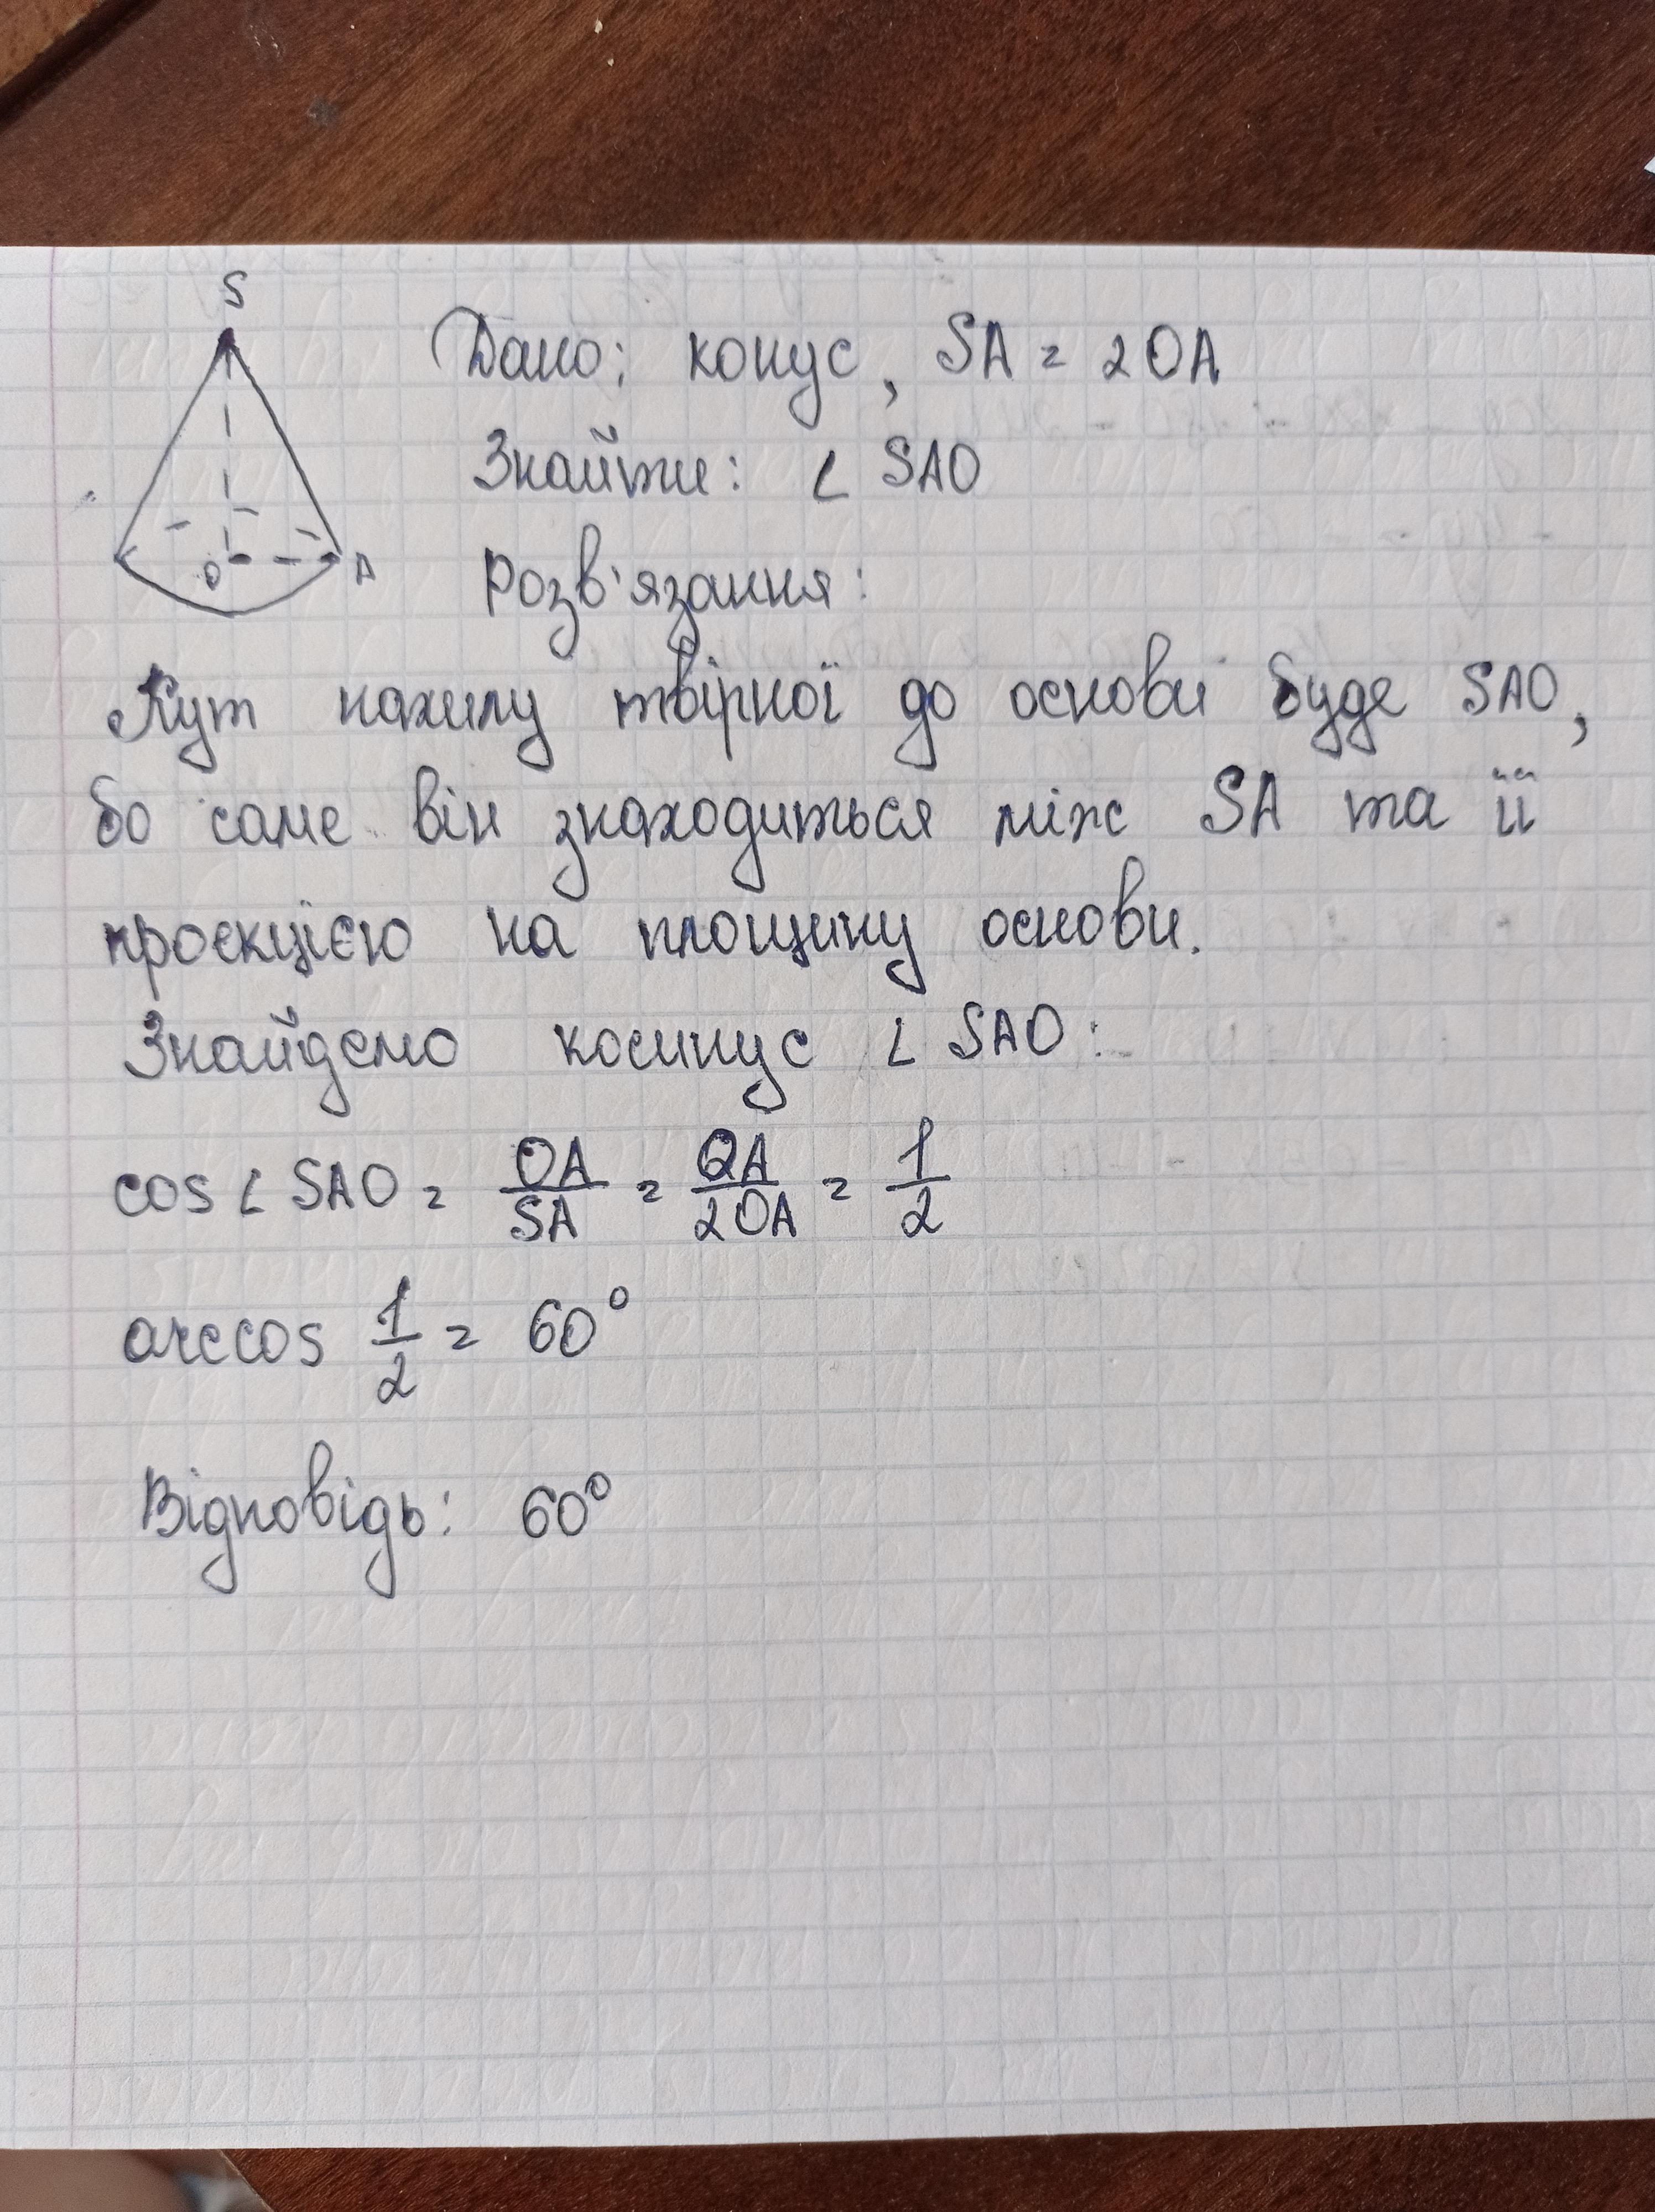 S
Дано: конус, SA = 2OA
Знайти: ∠ SAO
O A
Розв'язання:
Кут нахилу твірної до основи буде SAO,
бо саме він знаходиться між SA та її
проєкцією на площину основи.
Знайдемо косинус ∠ SAO:
cos ∠ SAO = OA/SA = OA/2OA = 1/2
arccos 1/2 = 60°
Відповідь: 60°